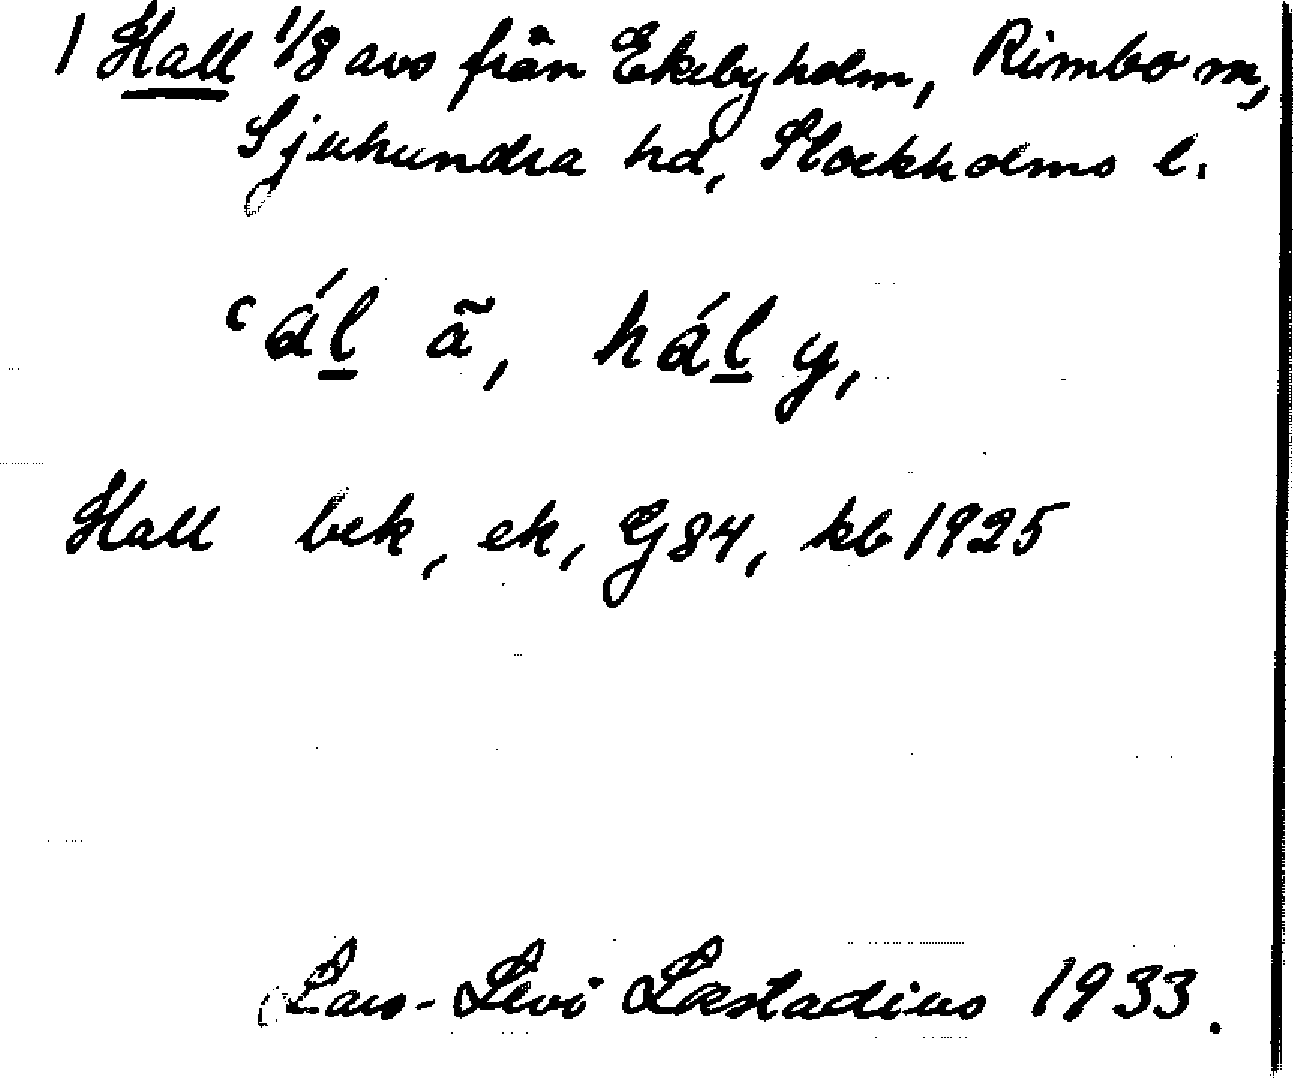 1 Hall 1/8 avs från Ekebyholm, Rimbo sn,
Sjuhundra hd, Stockholms l.
ʿál ã, hál y,
Hall bek, ek, G84, kb 1925
Lars-Levi Læstadius 1933.